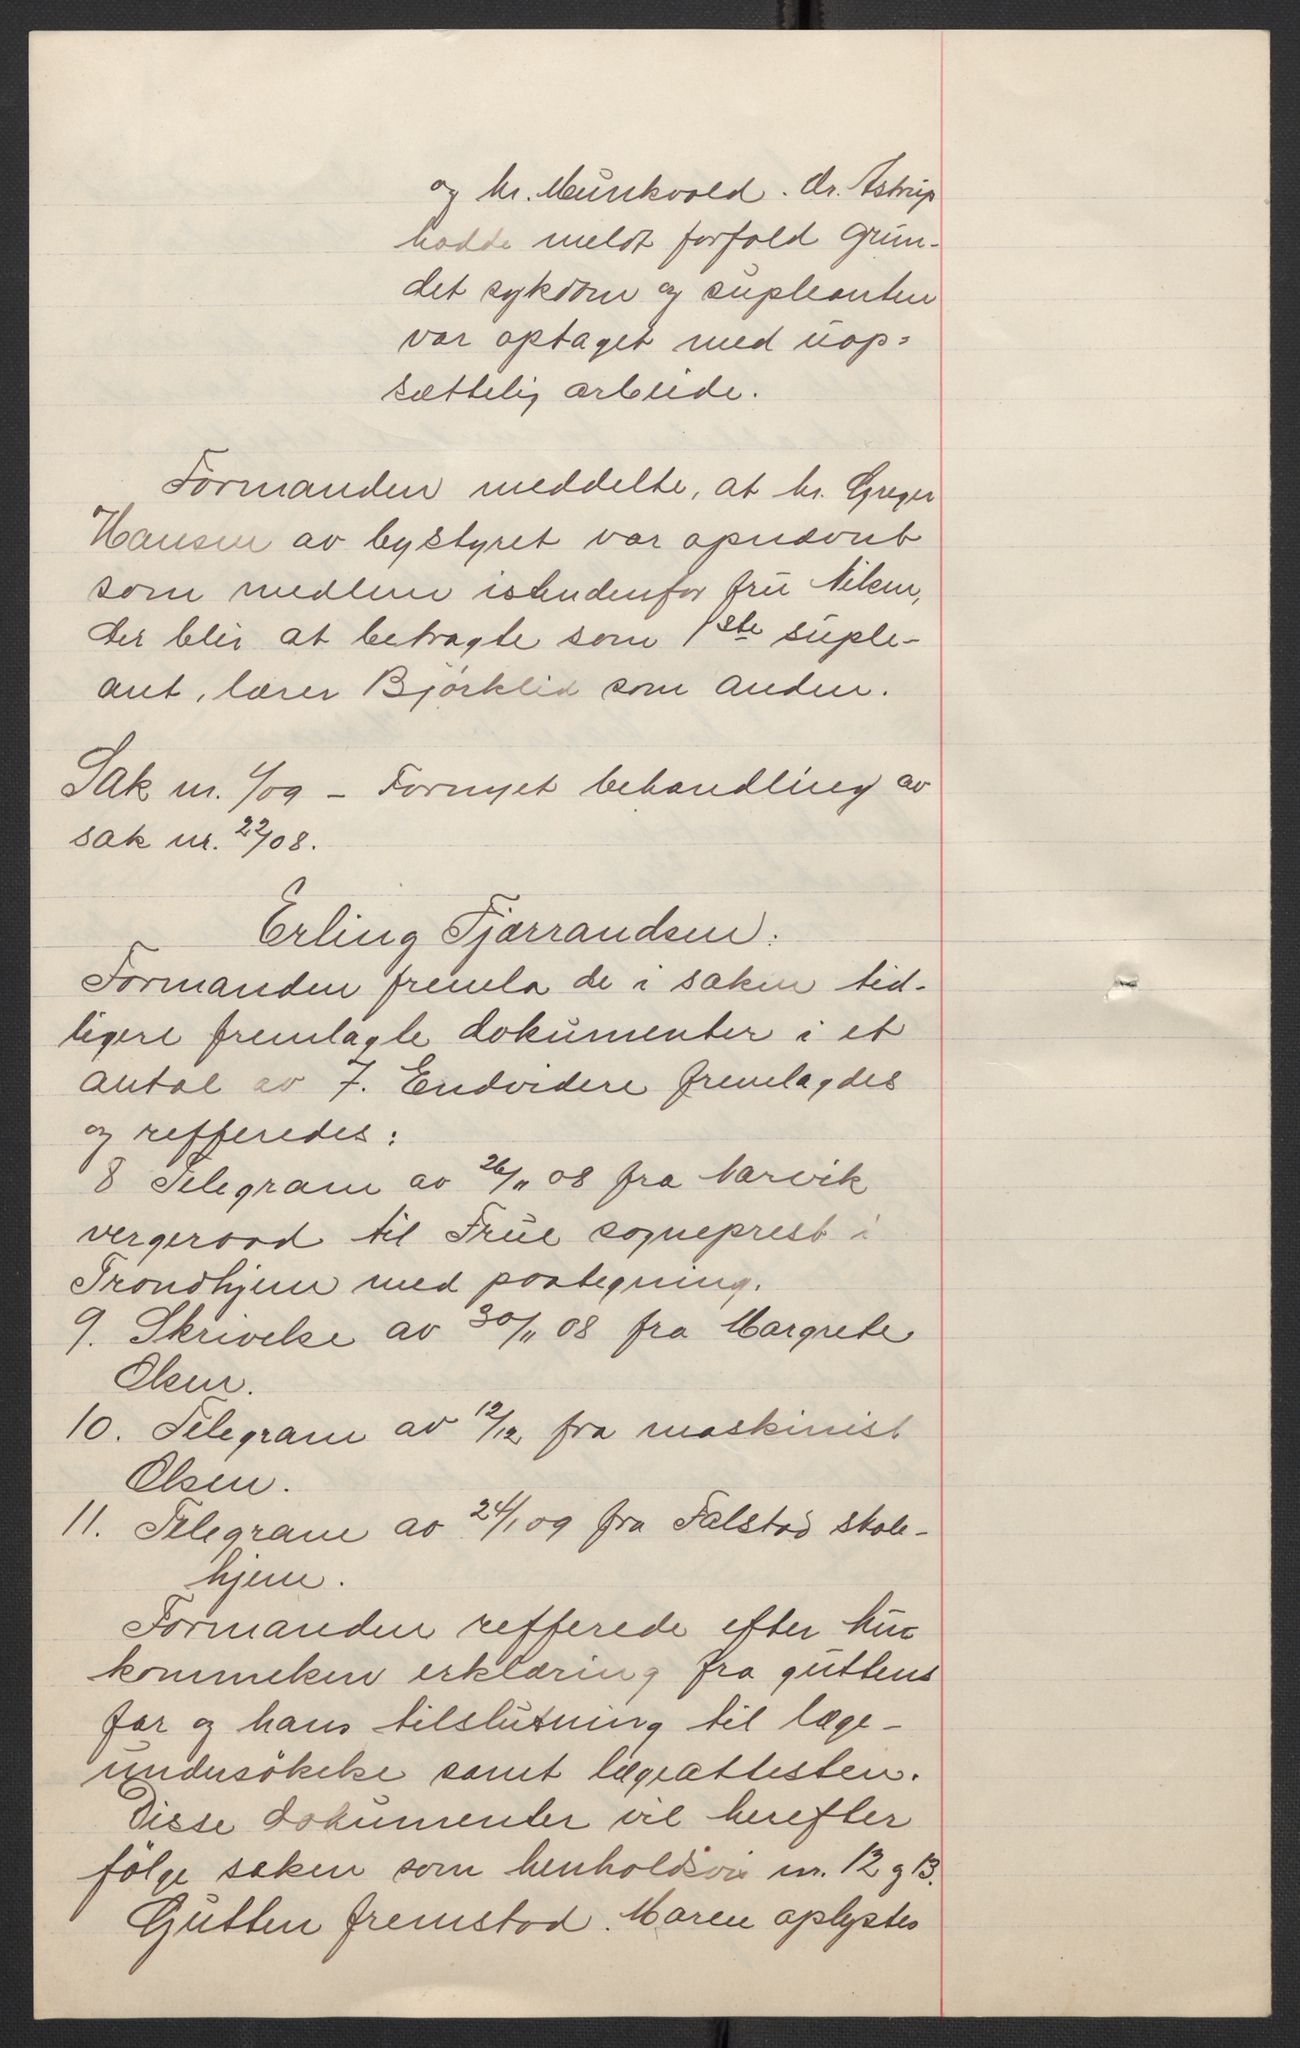 og hr. Munkvold. Dr. Astrup
hadde meldt forfald grun-
det sykdom og supleanten
var optaget med uop-
sættelig arbeide.
Formanden meddelte, at hr. Greger
Hansen av bystyret var opnævnt
som medlem istendenfor fru Nilsen,
der blir at betragte som 1ste suple-
ant, lærer Björklid som anden.
Sak nr. 1/09 – Fornyet behandling av
sak nr. 22/08.
Erling Fjærrandsen:
Formanden fremla de i saken tid-
ligere fremlagte dokumenter i et
antal av 7. Endvidere fremlagdes
og refferedes:
8 Telegram av 26/11 08 fra Narvik
vergeraad til Frue sogneprest i
Trondhjem med paategning.
9. Skrivelse av 30/11 08 fra Margrete
Olsen.
10. Telegram av 12/12 fra maskinist
Olsen.
11. Telegram av 24/1 09 fra Falstad skole-
hjem.
Formanden refferede efter hu-
kommelsen erklæring fra guttens
far og hans tilslutning til læge-
undersökelse samt lægeattesten.
Disse dokumenter vil herefter
fölge saken som henholdsvis nr. 12 og 13.
Gutten fremstod. Moren oplystes